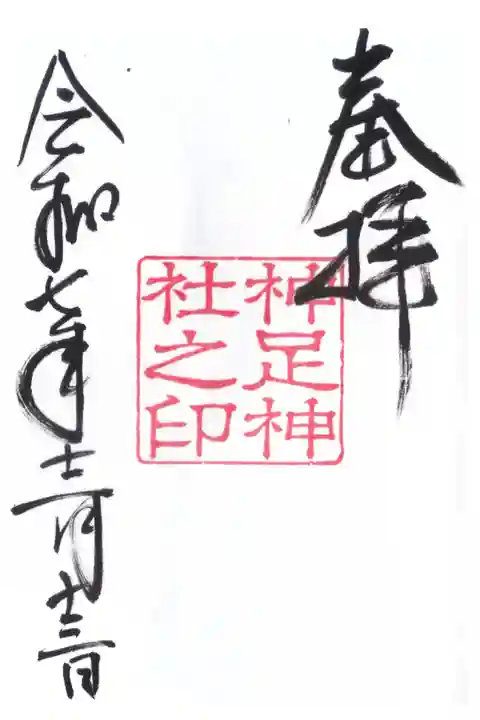 奉拝
神足神
社之印
令和七年十二月十三日